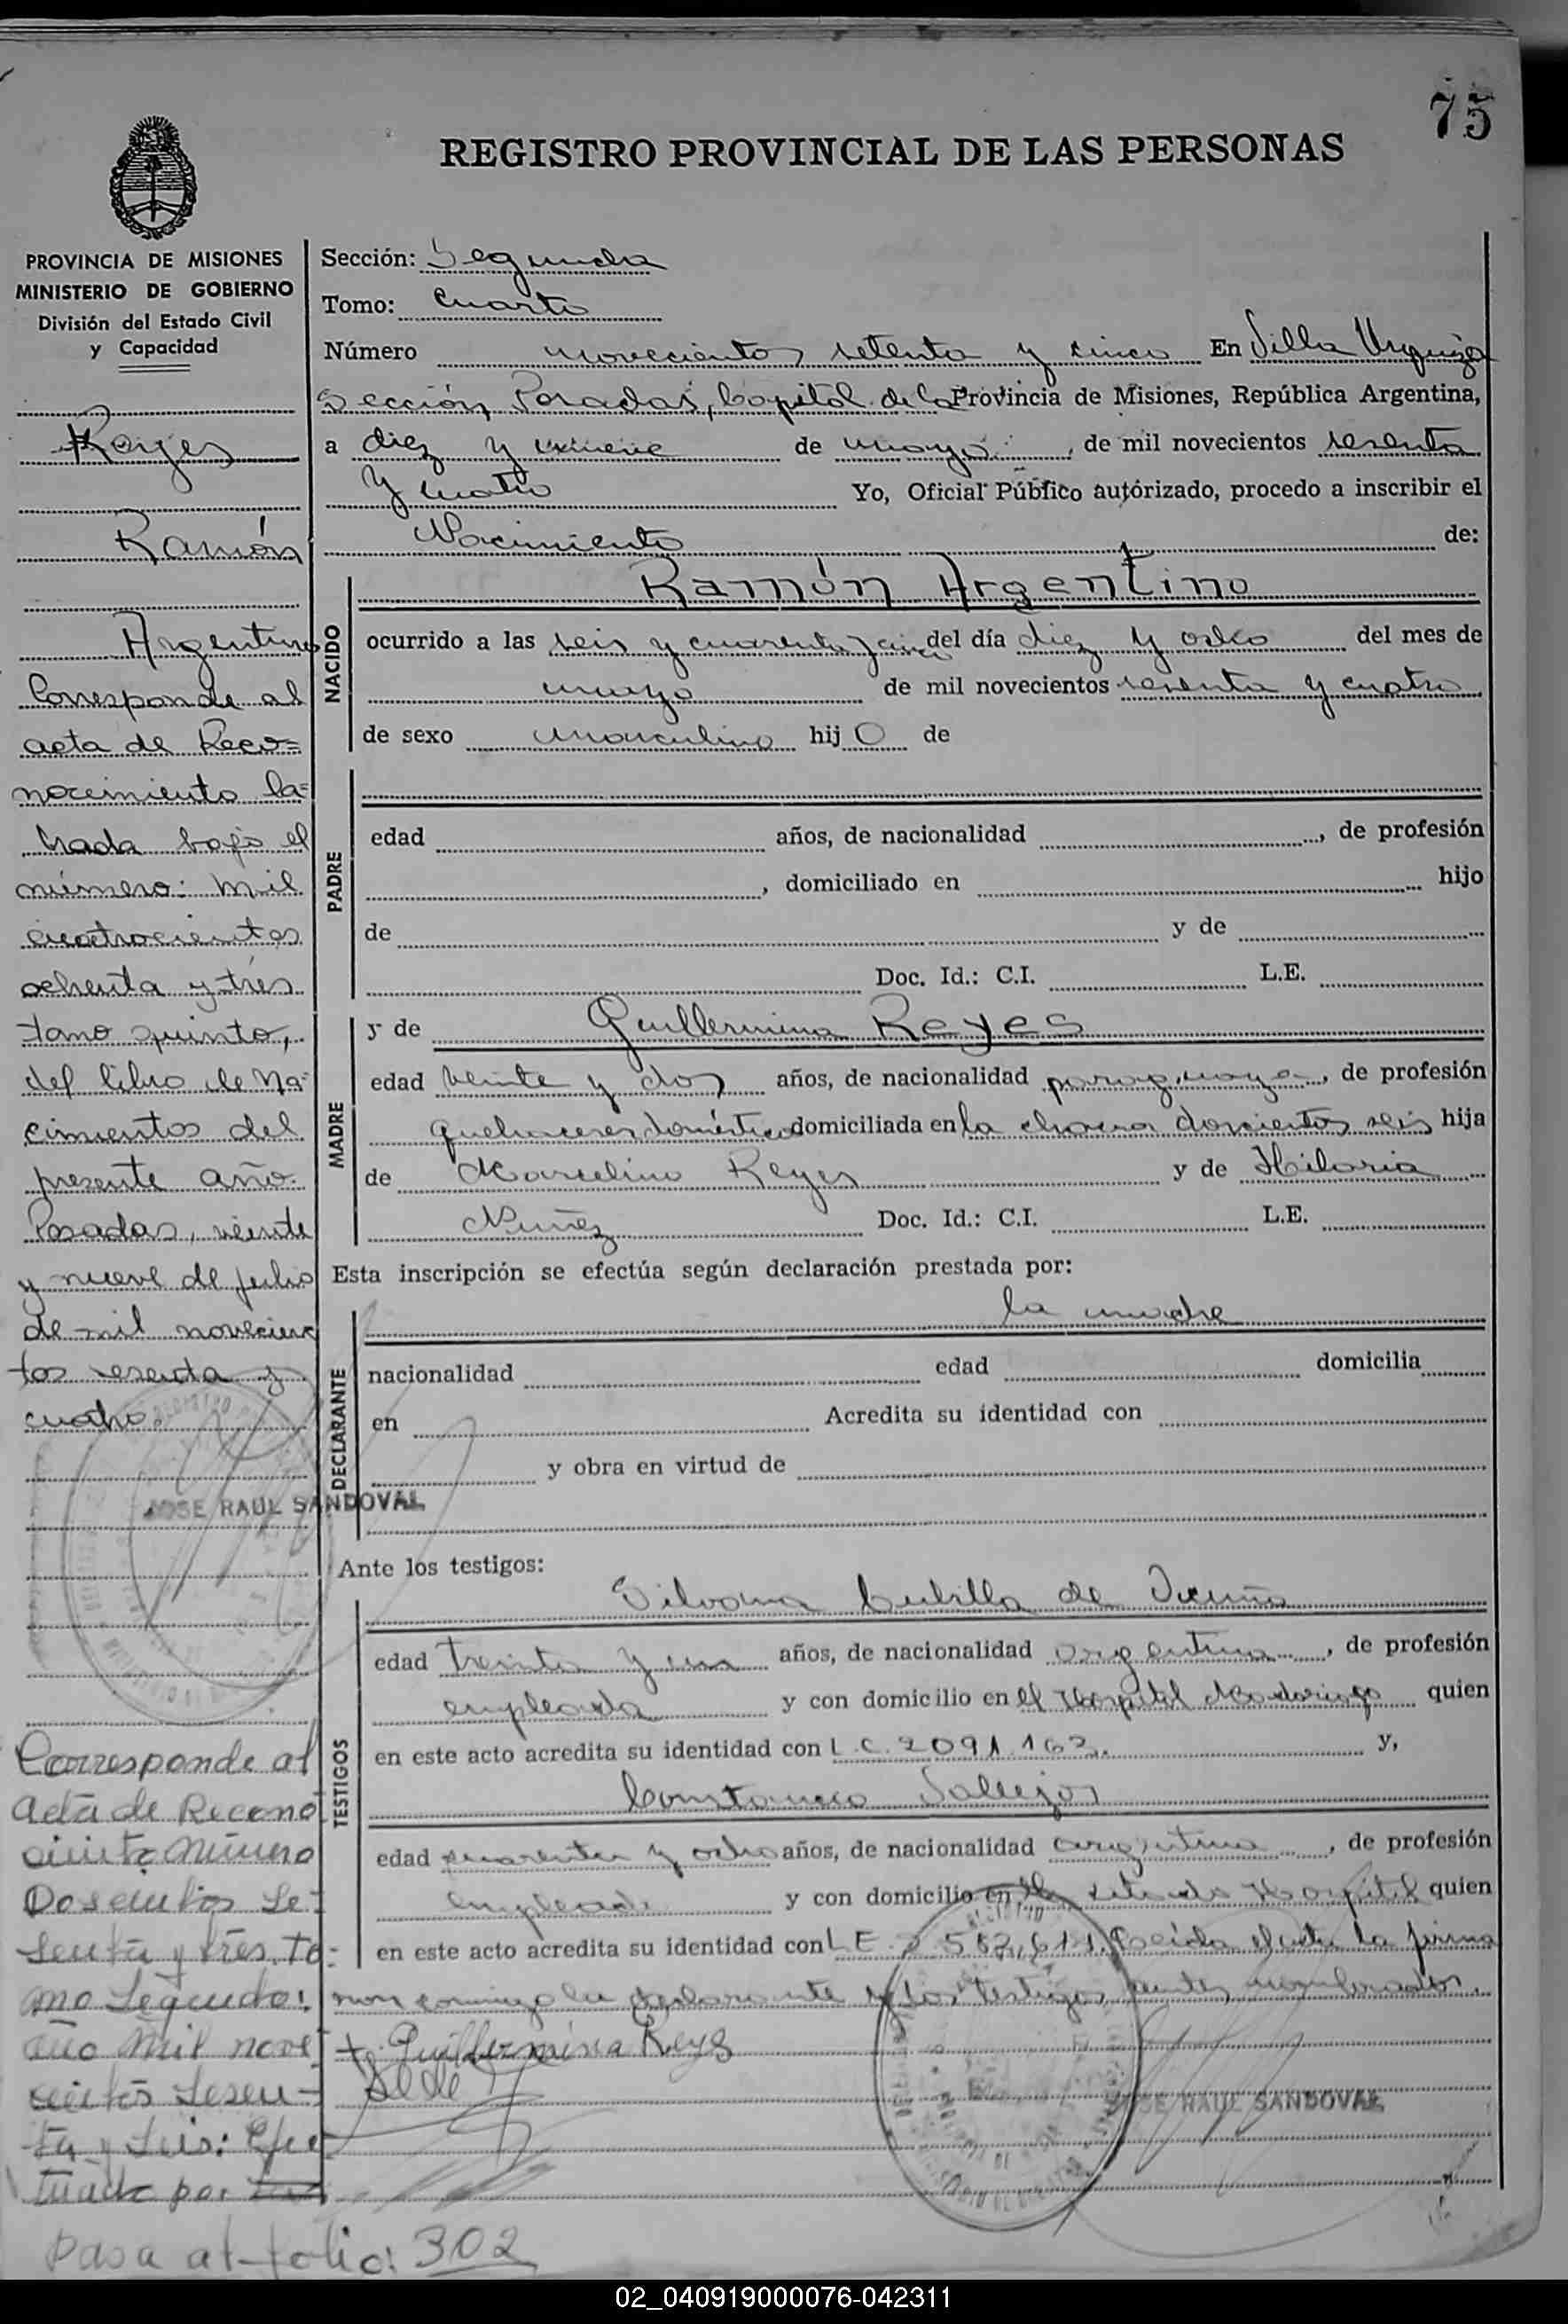 75
REGISTRO PROVINCIAL DE LAS PERSONAS
PROVINCIA DE MISIONES
MINISTERIO DE GOBIERNO
División del Estado Civil
y Capacidad
Reyes
Ramón
Argentino
Corresponde al
acta de Reco=
nocimiento la=
brada bajo el
número: mil
cuatrocientos
ochenta y tres
tomo quinto,
del libro de Na=
cimientos del
presente año.
Posadas, veinte
y nueve de julio
de mil novecien
tos sesenta y
cuatro.
JOSE RAUL SANDOVAL
Corresponde al
acta de Recono
cimiento Número
Doscientos Se-
senta y tres. To-
mo Segundo:
año mil nove
cientos sesen-
ta y seis: Efec
tuada por
Pasa al folio: 302
Sección: Segunda
Tomo: Cuarto
Número novecientos setenta y cinco En Villa Urquiza
Sección, Posadas, Capital de la Provincia de Misiones, República Argentina,
a diez y nueve de mayo, de mil novecientos sesenta
y cuatro Yo, Oficial Público autórizado, procedo a inscribir el
Nacimiento de:
NACIDO
Ramón Argentino
ocurrido a las seis y cuarenta y cinco del día diez y ocho del mes de
mayo de mil novecientos sesenta y cuatro
de sexo masculino hijo de
PADRE
edad años, de nacionalidad , de profesión
, domiciliado en hijo
de y de
Doc. Id.: C.I. L.E.
MADRE
y de Guillermina Reyes
edad veinte y dos años, de nacionalidad paraguaya, de profesión
quehaceres domésticos domiciliada en la chacra doscientos seis hija
de Marcelino Reyes y de Hilaria
Nuñez Doc. Id.: C.I. L.E.
Esta inscripción se efectúa según declaración prestada por:
DECLARANTE
la madre
nacionalidad edad domicilia
en Acredita su identidad con
y obra en virtud de
Ante los testigos:
TESTIGOS
Silvana Cubilla de
edad treinta y un años, de nacionalidad argentina, de profesión
empleada y con domicilio en el Hospital Madariaga quien
en este acto acredita su identidad con L.C. 2091.163. y,
Constancio Vallejos
edad cuarenta y ocho años, de nacionalidad argentina, de profesión
empleado y con domicilio en el citado Hospital quien
en este acto acredita su identidad con L.E. 2 562,611. Leída el acta la firma
con conmigo la declarante y los testigos antes nombrados.
Guillermina Reyes
JOSE RAUL SANDOVAL
02_040919000076-042311